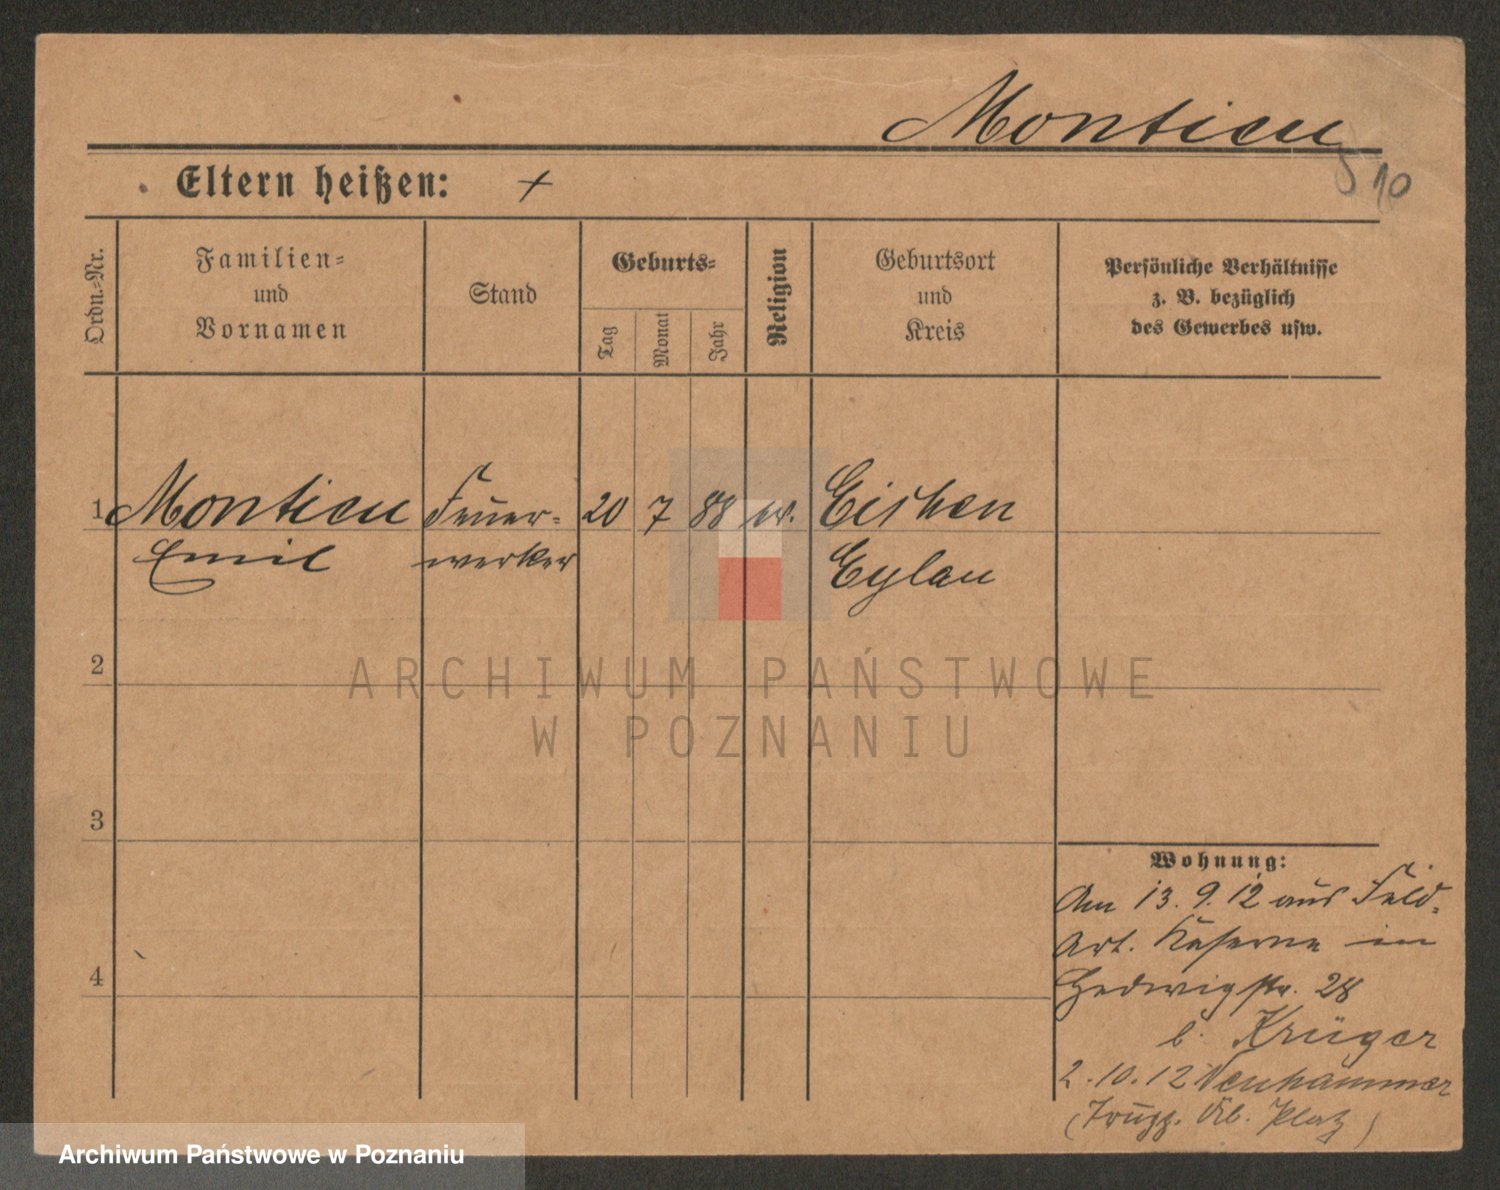 Monticu
10
Eltern heißen: +
Ordn.-Nr.
Familien-
und
Vornamen
Stand
Geburts-
Tag
Monat
Jahr
Religion
Geburtsort
und
Kreis
Persönliche Verhältnisse
z. B. bezüglich
des Gewerbes usw.
1 Monticu Feuer- 20 7 88 ev. Eichen
Emil werker Eylau
2
3
4
Wohnung:
Am 13. 9. 12 aus Feld-
Art. Kaserne in
Hedwigstr. 28
b. Krüger
2. 10. 12 Neuhammer
(Trupp. Üb. Platz)
ARCHIWUM PAŃSTWOWE
W POZNANIU
Archiwum Państwowe w Poznaniu